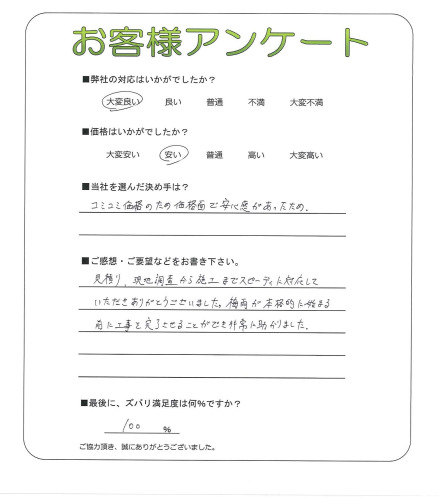 お客様アンケート
■弊社の対応はいかがでしたか？
大変良い 良い 普通 不満 大変不満
■価格はいかがでしたか？
大変安い 安い 普通 高い 大変高い
■当社を選んだ決め手は？
コミコミ価格のため価格面で安心感があったため.
■ご感想・ご要望などをお書き下さい。
見積り、現地調査から施工までスピーディに対応して
いただきありがとうございました。梅雨が本格的に始まる
前に工事を完了させることができ非常に助かりました.
■最後に、ズバリ満足度は何％ですか？
100 ％
ご協力頂き、誠にありがとうございました。